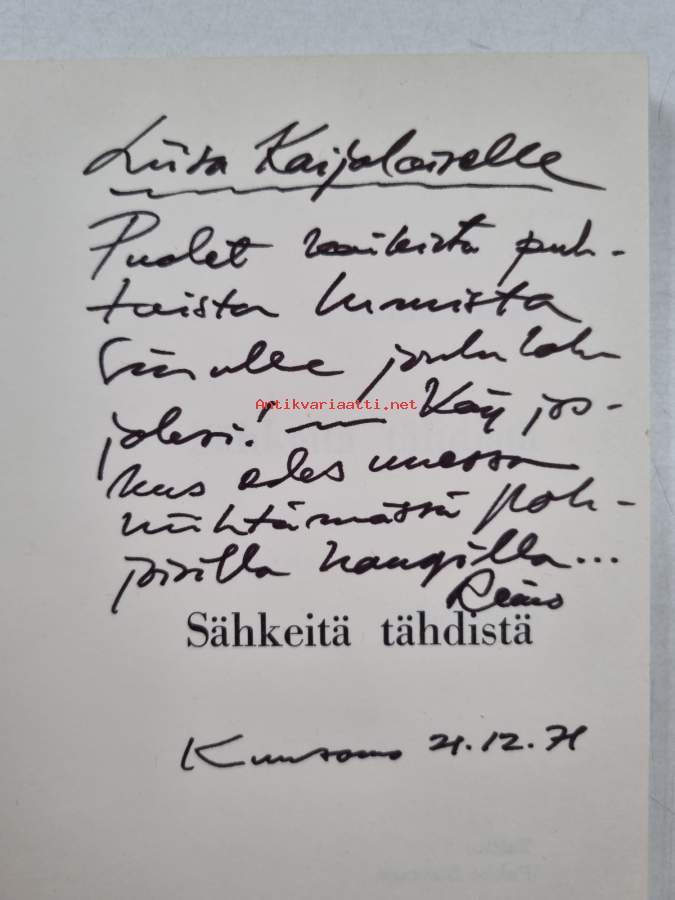 Liisa Kaijalaiselle
Puolet kaikista puh-
taista lumista
Sinulle joululah-
jaksi! Käy jos-
kus edes unessa
hiihtämässä poh-
joisilla hangilla...
Reino
Sähkeitä tähdistä
Kuusamo 21.12.71
Antikvariaatti.net